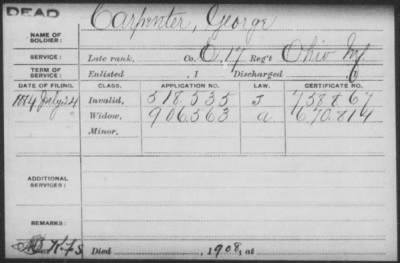 DEAD
Carpenter, George
NAME OF SOLDIER:
SERVICE: Late rank, Co. E, 17 Reg't Ohio Inf
TERM OF SERVICE: Enlisted , 1 Discharged , 1
DATE OF FILING. CLASS. APPLICATION NO. LAW. CERTIFICATE NO.
1884 July 24 Invalid, 518,535 J 758867
Widow, 906,563 a 670,814
Minor,
ADDITIONAL SERVICES:
REMARKS:
Died , 1908, at